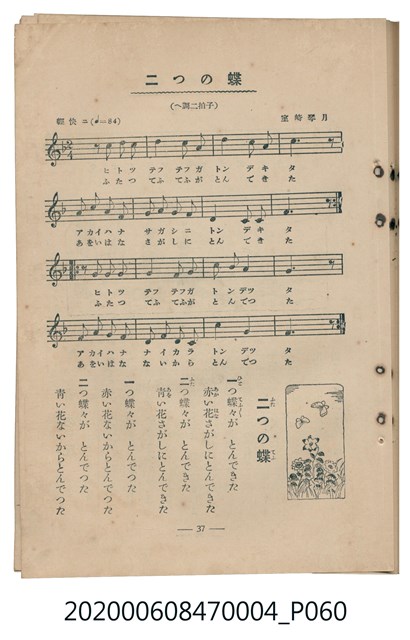 二つの蝶
(ヘ調二拍子)
輕快ニ(♩=84)
室崎琴月
ヒトツ テフ テフガ トン デキ タ
ふたつ てふ てふが とん できた
アカイハナ サガシニ トン デキ タ
あをいはな さがしに とん できた
ヒトツ テフ テフガ トンデツ タ
ふたつ てふ てふが とんでつた
アカイハナ ナイカラ トンデツ タ
あをいはな ないから とんでつた
二つの蝶
一つ蝶々が とんできた
赤い花さがしにとんできた
二つ蝶々が とんできた
青い花さがしにとんできた
一つ蝶々が とんでつた
赤い花ないからとんでつた
二つ蝶々が とんでつた
青い花ないからとんでつた
— 37 —
202000608470004_P060